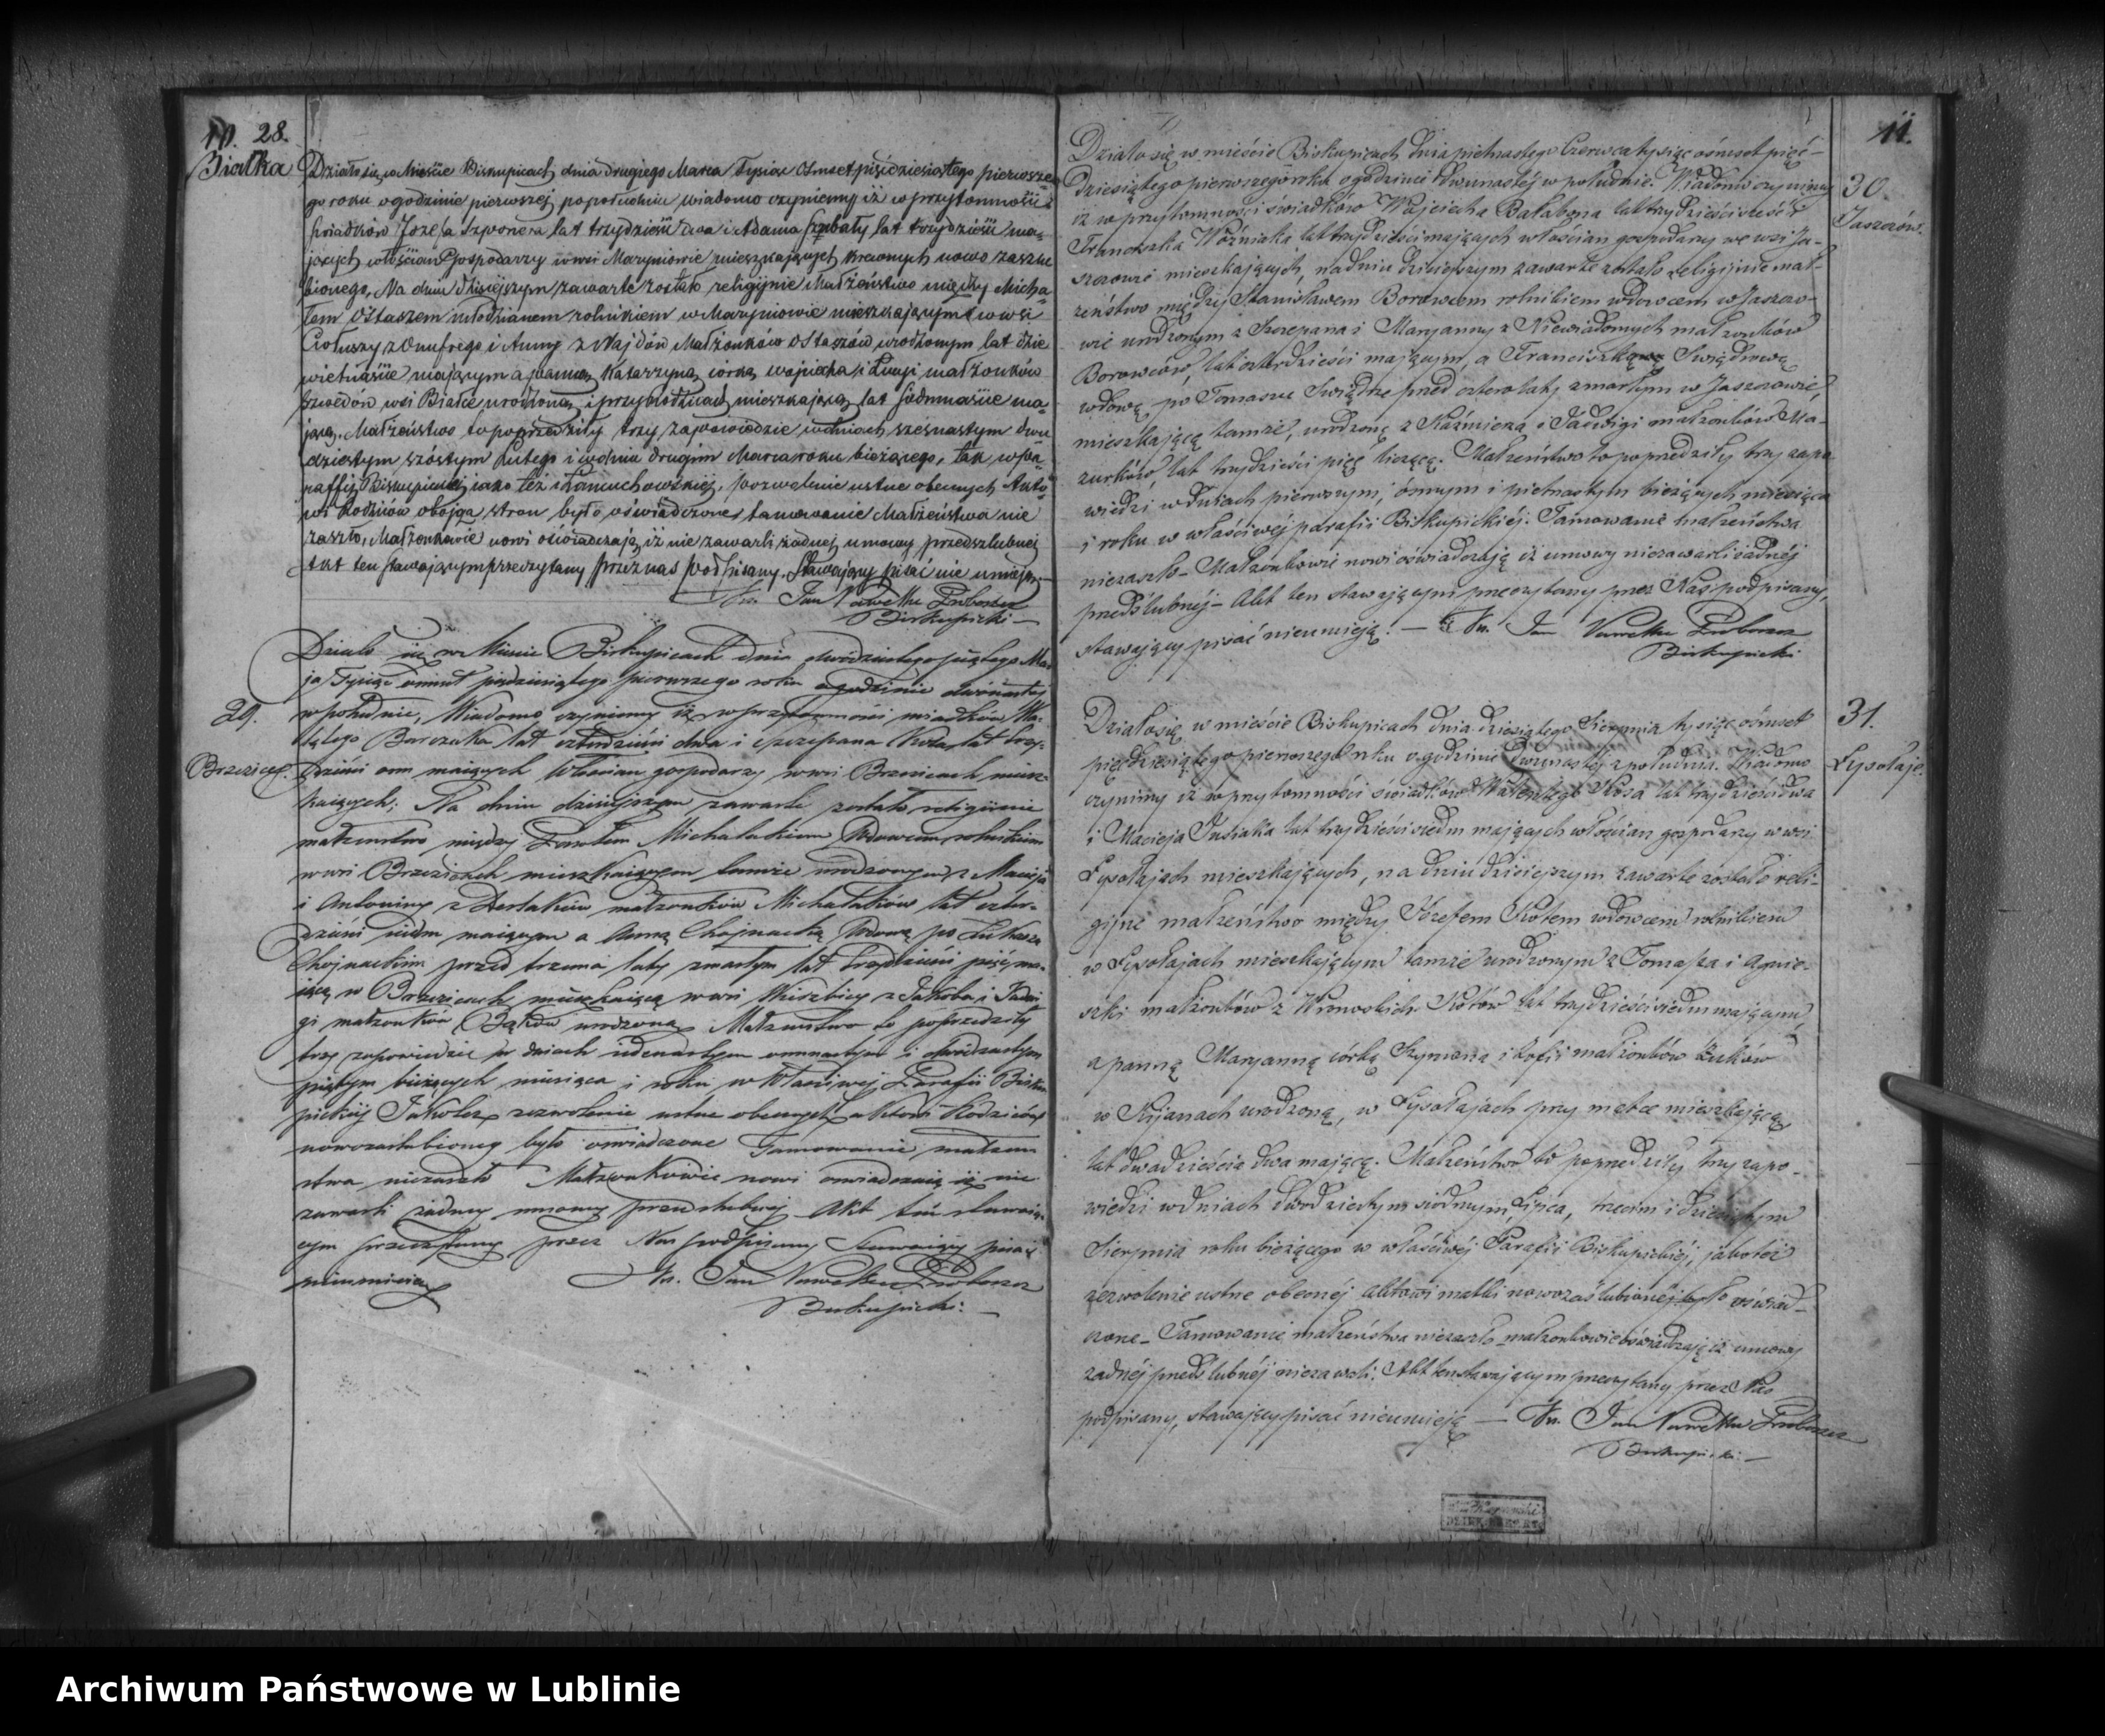 10. 28.
Białka
Działo się w Mieście Biskupicach dnia drugiego Marca Tysiąc Ośmset pięćdziesiątego pierwsze=
go roku, o godzinie pierwszej popołudniu wiadomo czyniemy iż w przytomności
świadków Józefa Szponera lat trzydzieści dwa i Adama lat trzydzieści ma=
jących włościan Gospodarzy w wsi Maryniowie mieszkających krewnych nowo zaszlu
bionego, Na dniu dzisiejszym zawarte zostało religijnie Małżeństwo między Micha=
łem Ostaszem młodzianem rolnikiem w Maryniowie mieszkającym w wsi
z Onufrego i Anny z Wajdów Małżonków Ostaszów urodzonym, lat dzie
więtnaście mającym a panną Katarzyną córką Wojciecha i małżonków
wsi Białce urodzoną i przy rodzicach mieszkającą lat siedmnaście ma=
jącą. Małżeństwo to poprzedziły trzy zapowiedzie w dniach szesnastym dwu
dziestym szóstym Lutego i w dniu drugim Marca roku bieżącego, tak w pa=
raffij Biskupickiej jako też i Łańcuchowskiej, pozwolenie ustne obecnych Akto=
wi Rodziców obojga stron było oświadczone, tamowanie Małżeństwa nie
zaszło, Małżonkowie nowi oświadczają iż nie zawarli żadnej umowy przedszlubnej
Akt ten stawającym przeczytany przez nas podpisany. Stawający pisać nie umieją.
Ks. Jan Proboszcz
Biskupicki
29.
Brzezice.
Działo się w Mieście Biskupicach dnia dwódziestego piątego Ma
ja Tysiąc ośmset pięćdziesiątego pierwszego roku o godzinie dwónastej
w południe, Wiadomo czyniemy iż w przytomności świadków Wa=
lętego Barczuka lat czterdzieści dwa i Szczepana lat trzy=
dzieści ośm maiących Włościan gospodarzy w wsi Brzezicach miesz=
kaiących; Na dniu dzisiejszym zawarte zostało religijnie
małżeństwo między Pawłem Michalakiem Wdowcem rolnikiem
w wsi Brzezicach mieszkaiącym tamże urodzonym z Macieja
i Antoniny z małżonków Michalaków lat czter=
dzieści siedm maiącym a Anną Chojnacką Wdową po Łukaszu
Chojnackim przed trzema laty zmarłym lat trzydzieści pięć ma=
iącą w Brzezicach mieszkaiącą w wsi z Jakóba i Jadwi
gi małżonków Bąków urodzoną. Małżeństwo to poprzedziły
trzy zapowiedzie w dniach iedenastym ośmnastym i dwódziestym
piątym bieżących miesiąca i roku w Właściwej Parafii Bisku
pickiej Jakoteż zezwolenie ustne obecnych aktowi Rodziców
nowozaślubionej było oświadczone Tamowanie małżeń
stwa niezaszło Małżonkowie nowi oświadczaią iż nie
zawarli żadney umowy przedślubnej Akt ten stawaią=
cym przeczytany przez Nas podpisany Stawaiący pisać
nieumieią Ks. Jan Proboszcz
Biskupicki.
11.
30.
Jaszczów.
Działo się w mieście Biskupicach dnia pietnastego Czerwca tysiąc ośmset pięć=
dziesiątego pierwszego roku o godzinie dwunastéj w południe. Wiadomo czynimy
iż w przytomności świadków Wojciecha Bałabona lat trzydzieści sześć i
Franciszka Woźniaka lat trzydzieści mających włościan gospodarzy we wsi Ja=
szczowie mieszkających, na dniu dzisiejszym zawarte zostało religijnie mał=
żeństwo między Stanisławem Borowcem rolnikiem wdowcem w Jaszczo=
wie urodzonym z Szczepana i Maryanny z Niewiadomych małżonków
Borowców, lat czterdzieści mającym, a Franciszką Swiędrową
wdową po Tomaszu Swiędrze przed czterolaty zmarłym w Jaszczowie,
mieszkającą tamże, urodzoną z Kaźmierza i Jadwigi małżonków Ma=
zurków, lat trzydzieści pięć liczącą. Małżeństwo to poprzedziły trzy zapo
wiedzi w dniach pierwszym, ósmym i pietnastym bieżących miesiąca
i roku w właściwéj parafii Biskupickiéj. Tamowanie małżeństwa
niezaszło – Małżonkowie nowi oświadczają iż umowy niezawarli żadnéj
przedślubnéj – Akt ten stawającym przeczytany przez Nas podpisany,
stawający pisać nieumieją. — Ks. Jan Proboszcz
Biskupicki
31.
Łysołaje.
Działo się w mieście Biskupicach dnia dziesiątego Sierpnia tysiąc ośmset
pięćdziesiątego pierwszego roku o godzinie dwunastéj z południa. Wiadomo
czynimy iż w przytomności świadków Walentego Kosa lat trzydzieści dwa
i Macieja Jusiaka lat trzydzieści siedm mających włościan gospodarzy w wsi
Łysołajach mieszkających, na dniu dzisiejszym zawarte zostało reli=
gijne małżeństwo między Józefem Kotem wdowcem rolnikiem
w Łysołajach mieszkającym tamże urodzonym z Tomasza i Agnie=
szki małżonków z Wronoskich Kotów lat trzydzieści siedm mającym,
a panną Maryanną córką Szymona i Zofii małżonków Żuków
w Kijanach urodzoną, w Łysołajach przy matce mieszkającą,
lat dwadzieścia dwa mającą. Małżeństwo to poprzedziły trzy zapo=
wiedzi w dniach dwudziestym siódmym Lipca, trzecim i dziesiątym
Sierpnia roku bieżącego w właściwéj Parafii Biskupickiéj, jakoteż
zezwolenie ustne obecnéj aktowi matki nowozaślubionéj było oświad=
czone – Tamowanie małżeństwa niezaszło – małżonkowie oświadczają iż umowy
żadnéj przedślubnéj niezawarli. Akt ten stawającym przeczytany przez Nas
podpisany, stawający pisać nieumieją — Ks. Jan Proboszcz
Biskupicki. —
Archiwum Państwowe w Lublinie